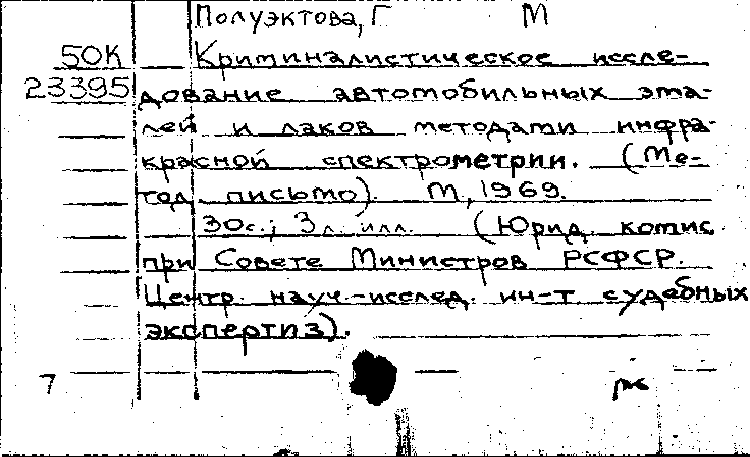 Полуэктова, Г М
50К Криминалистическое иссле-
23395 дование автомобильных эма-
лей и лаков методами инфра-
красной спектрометрии. (Ме-
тод. письмо). М, 1969.
30с.; 3л. илл. (Юрид. комис.
при Совете Министров РСФСР.
Центр. науч.-исслед. ин-т судебных
экспертиз).
7